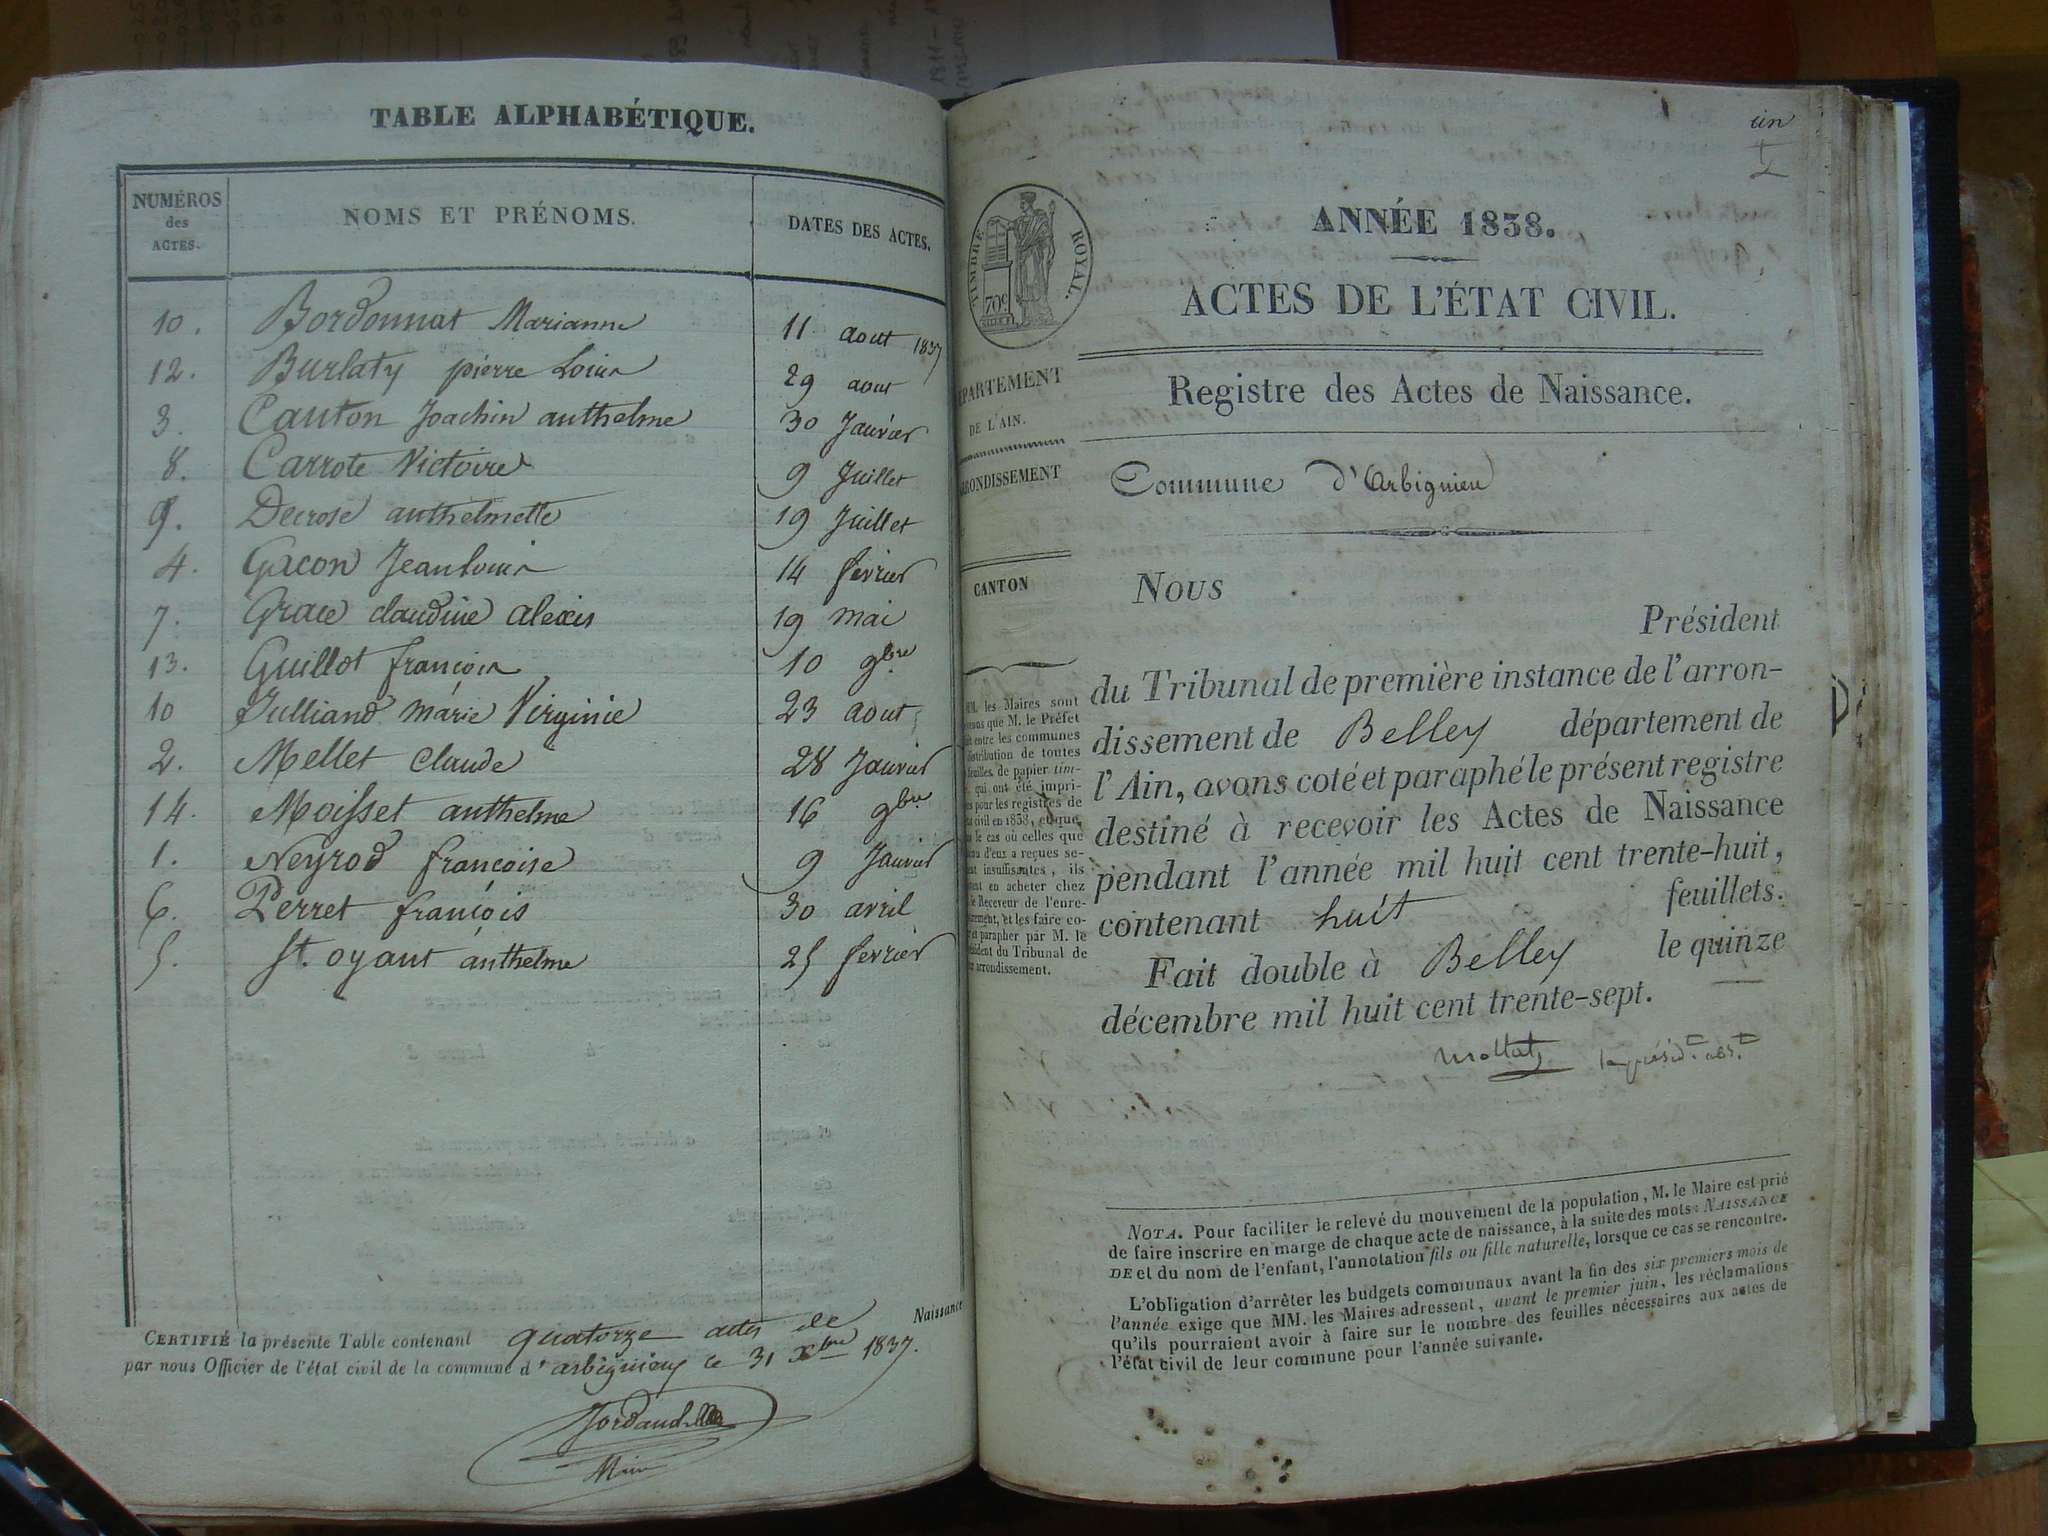 TABLE ALPHABÉTIQUE.
NUMÉROS des ACTES. NOMS ET PRÉNOMS. DATES DES ACTES.
10. Bordonnat Marianne 11 aout 1837
12. Burlaty pierre Louis 29 aout
3. Canton Joachin anthelme 30 Janvier
8. Carrote Victoire 9 Juillet
9. Decrose anthelmette 19 Juillet
4. Gacon Jean louis 14 fevrier
7. Grace claudine alexis 19 mai
13. Guillot françois 10 9bre
10 Julliand marie Virginie 23 aout
2. Mellet Claude 28 Janvier
14. Moisset anthelme 16 9bre
1. Neyrod françoise 9 Janvier
6. Perret françois 30 avril
5. St. oyant anthelme 25 fevrier
CERTIFIÉ la présente Table contenant quatorze actes de Naissance
par nous Officier de l'état civil de la commune d'arbignieu ce 31 Xbre 1837.
Jordand
Maire
un
1
TIMBRE ROYAL.
70c
ANNÉE 1838.
ACTES DE L'ÉTAT CIVIL.
Registre des Actes de Naissance.
Commune d'Arbignieu
DÉPARTEMENT
DE L'AIN.
ARRONDISSEMENT
CANTON
MM. les Maires sont
que M. le Préfet
entre les communes
distribution de toutes
feuilles de papier tim-
qui ont été impri-
pour les registres de
civil en 1838, et que,
le cas où celles que
d'eux a reçues se-
insuffisantes, ils
en acheter chez
le Receveur de l'enre-
gistrement, et les faire co-
ter et parapher par M. le
Président du Tribunal de
arrondissement.
Nous
Président
du Tribunal de première instance de l'arron-
dissement de Belley département de
l'Ain, avons coté et paraphé le présent registre
destiné à recevoir les Actes de Naissance
pendant l'année mil huit cent trente-huit,
contenant huit feuillets.
Fait double à Belley le quinze
décembre mil huit cent trente-sept.
Mollat, le présidt. abst.
NOTA. Pour faciliter le relevé du mouvement de la population, M. le Maire est prié
de faire inscrire en marge de chaque acte de naissance, à la suite des mots: NAISSANCE
DE et du nom de l'enfant, l'annotation fils ou fille naturelle, lorsque ce cas se rencontre.
L'obligation d'arrêter les budgets communaux avant la fin des six premiers mois de
l'année exige que MM. les Maires adressent, avant le premier juin, les réclamations
qu'ils pourraient avoir à faire sur le nombre des feuilles nécessaires aux actes de
l'état civil de leur commune pour l'année suivante.